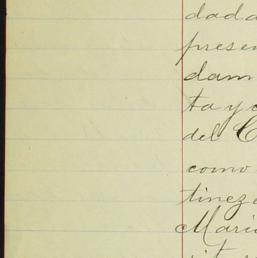 dada
presen
dam
ta y c
del C
como
tinez
Mari